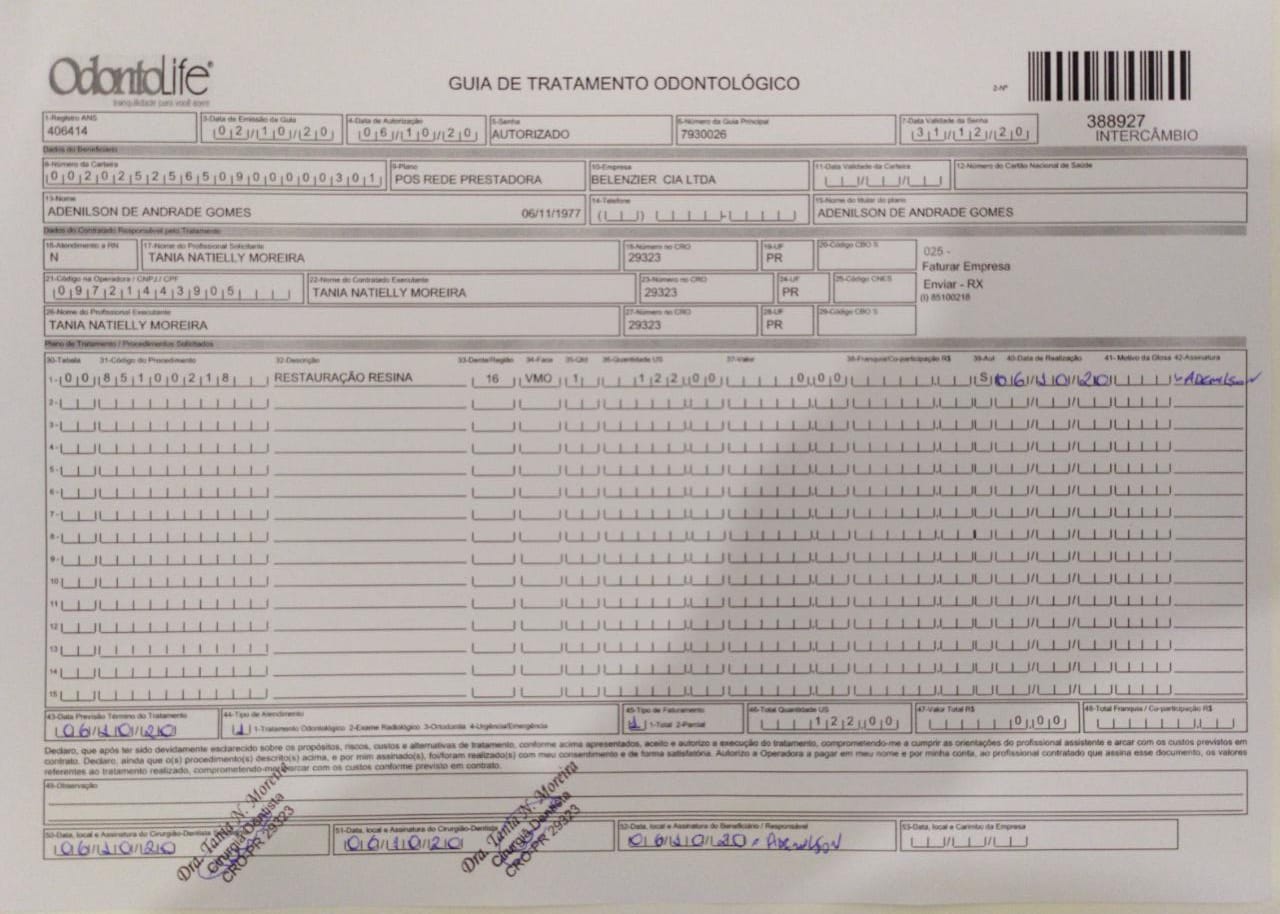 OdontoLife®
tranquilidade para você sorrir
GUIA DE TRATAMENTO ODONTOLÓGICO
2-Nº
388927
INTERCÂMBIO
1-Registro ANS
406414
3-Data de Emissão da Guia
02/10/20
4-Data de Autorização
06/10/20
5-Senha
AUTORIZADO
6-Número da Guia Principal
7930026
7-Data Validade da Senha
31/12/20
Dados do Beneficiário
8-Número da Carteira
00202525650900000301
9-Plano
POS REDE PRESTADORA
10-Empresa
BELENZIER CIA LTDA
11-Data Validade da Carteira
12-Número do Cartão Nacional de Saúde
13-Nome
ADENILSON DE ANDRADE GOMES 06/11/1977
14-Telefone
15-Nome do titular do plano
ADENILSON DE ANDRADE GOMES
Dados do Contratado Responsável pelo Tratamento
16-Atendimento a RN
N
17-Nome do Profissional Solicitante
TANIA NATIELLY MOREIRA
18-Número no CRO
29323
19-UF
PR
20-Código CBO S
025 -
Faturar Empresa
Enviar - RX
(I) 85100218
21-Código na Operadora / CNPJ / CPF
09721443905
22-Nome do Contratado Executante
TANIA NATIELLY MOREIRA
23-Número no CRO
29323
24-UF
PR
25-Código CNES
26-Nome do Profissional Executante
TANIA NATIELLY MOREIRA
27-Número no CRO
29323
28-UF
PR
29-Código CBO S
Plano de Tratamento / Procedimentos Solicitados
30-Tabela 31-Código do Procedimento 32-Descrição 33-Dente/Região 34-Face 35-Qtd 36-Quantidade US 37-Valor 38-Franquia/Co-participação R$ 39-Aut 40-Data de Realização 41- Motivo da Glosa 42-Assinatura
1- 00 85100218 RESTAURAÇÃO RESINA 16 VMO 1 122 00 0 00 S 06/10/20 Adenilson
2-
3-
4-
5-
6-
7-
8-
9-
10
11
12
13
14
15
43-Data Previsão Término do Tratamento
06/10/20
44-Tipo de Atendimento
1 1-Tratamento Odontológico 2-Exame Radiológico 3-Ortodontia 4-Urgência/Emergência
45-Tipo de Faturamento
1 1-Total 2-Parcial
46-Total Quantidade US
122 00
47-Valor Total R$
0 00
48-Total Franquia / Co-participação R$
Declaro, que após ter sido devidamente esclarecido sobre os propósitos, riscos, custos e alternativas de tratamento, conforme acima apresentados, aceito e autorizo a execução do tratamento, comprometendo-me a cumprir as orientações do profissional assistente e arcar com os custos previstos em
contrato. Declaro, ainda que o(s) procedimento(s) descrito(s) acima, e por mim assinado(s), fosforam realizado(s) com meu consentimento e de forma satisfatória. Autorizo a Operadora a pagar em meu nome e por minha conta, ao profissional contratado que assina esse documento, os valores
referentes ao tratamento realizado, comprometendo-me arcar com os custos conforme previsto em contrato.
49-Observação
50-Data, local e Assinatura do Cirurgião-Dentista
06/10/20
Dra. Tania N. Moreira
Cirurgiã-Dentista
CRO-PR 29323
51-Data, local e Assinatura do Cirurgião-Dentista
06/10/20
Dra. Tania N. Moreira
Cirurgiã-Dentista
CRO-PR 29323
52-Data, local e Assinatura do Beneficiário / Responsável
06/10/20 Adenilson
53-Data, local e Carimbo da Empresa